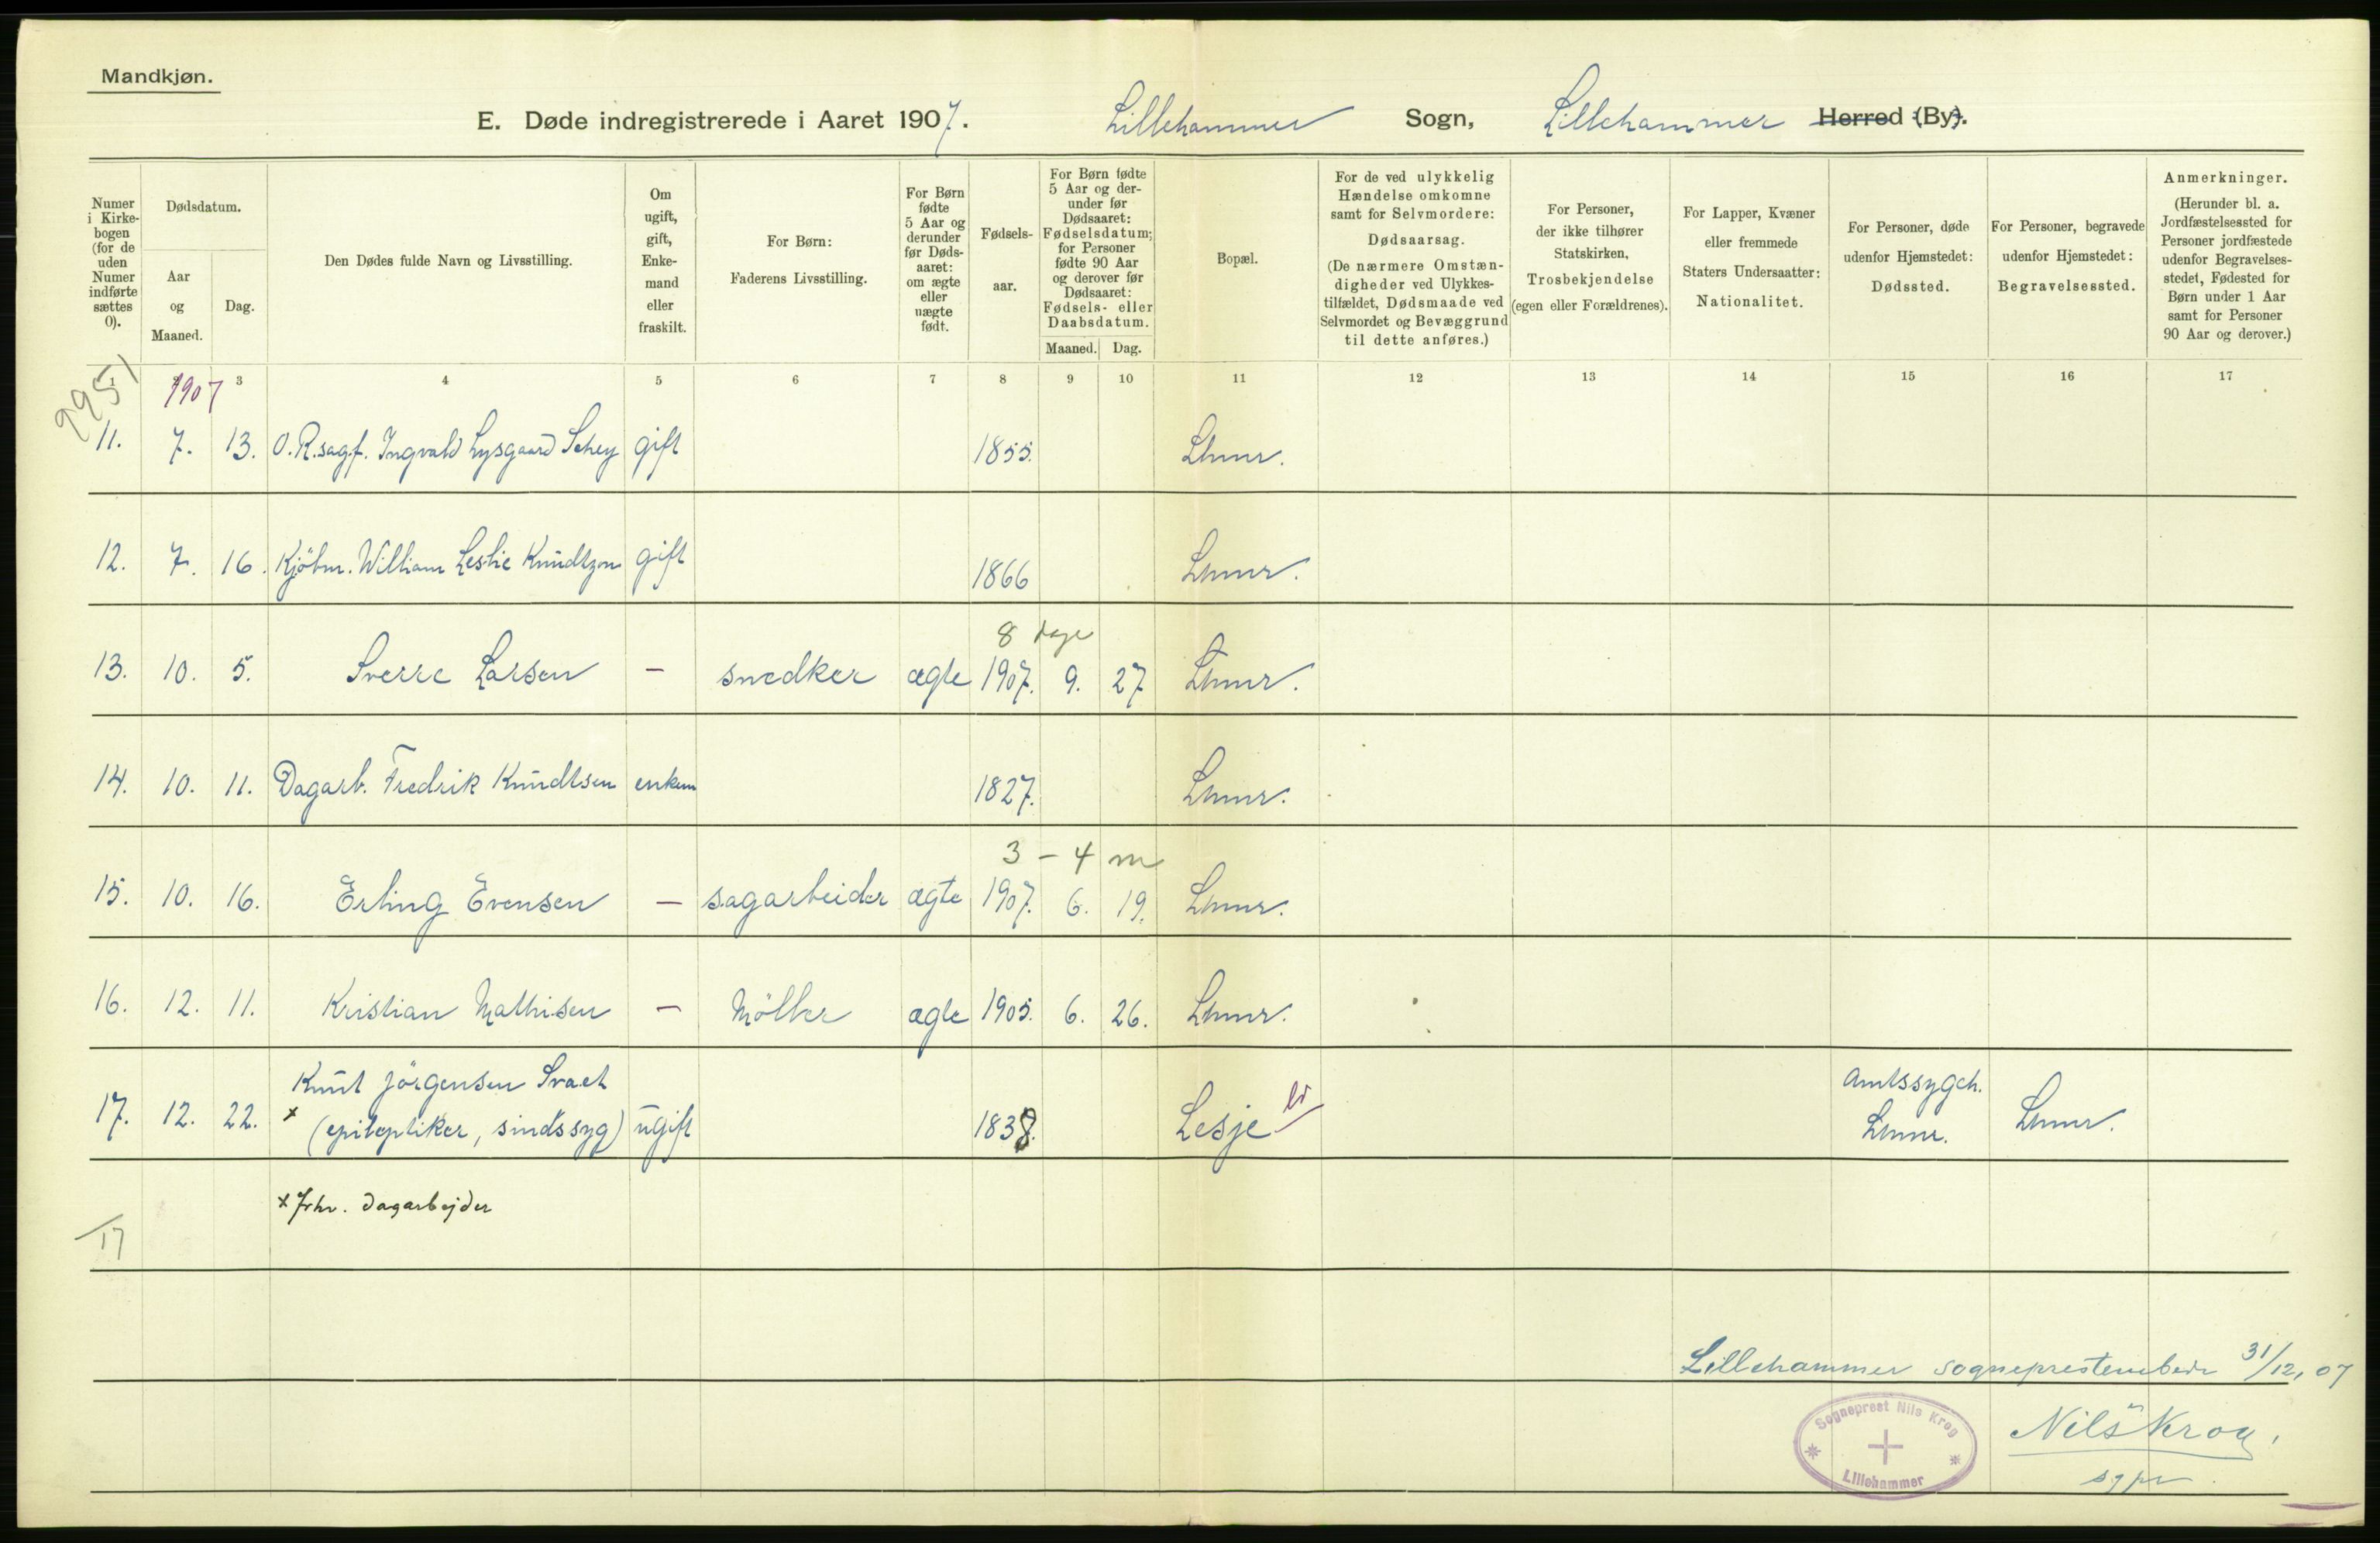 Mandkjøn.
E. Døde indregistrerede i Aaret 1907. Lillehammer Sogn, Lillehammer Herred (By).
Numer i Kirkebogen (for de uden Numer indførte sættes 0).
Dødsdatum.
Aar og Maaned.
Dag.
Den Dødes fulde Navn og Livsstilling.
Om ugift, gift, Enkemand eller fraskilt.
For Børn: Faderens Livsstilling.
For Børn fødte 5 Aar og derunder før Dødsaaret: om ægte eller uægte født.
Fødselsaar.
For Børn fødte 5 Aar og derunder før Dødsaaret: Fødselsdatum; for Personer fødte 90 Aar og derover før Dødsaaret: Fødsels- eller Daabsdatum.
Maaned. Dag.
Bopæl.
For de ved ulykkelig Hændelse omkomne samt for Selvmordere: Dødsaarsag. (De nærmere Omstændigheder ved Ulykkestilfældet, Dødsmaade ved Selvmordet og Bevæggrund til dette anføres.)
For Personer, der ikke tilhører Statskirken, Trosbekjendelse (egen eller Forældrenes).
For Lapper, Kvæner eller fremmede Staters Undersaatter: Nationalitet.
For Personer, døde udenfor Hjemstedet: Dødssted.
For Personer, begravede udenfor Hjemstedet: Begravelsessted.
Anmerkninger. (Herunder bl. a. Jordfæstelsessted for Personer jordfæstede udenfor Begravelsesstedet, Fødested for Børn under 1 Aar samt for Personer 90 Aar og derover.)
1 2 3 4 5 6 7 8 9 10 11 12 13 14 15 16 17
1907
11. 7. 13. O.R.sagf. Ingvald Lysgaard Schey gift 1855. Lhmr.
12. 7. 16. Kjöbm. William Leslie Knudtzon gift 1866 Lhmr.
8 dage
13. 10. 5. Sverre Larsen – snedker ægte 1907. 9. 27 Lhmr.
14. 10. 11. Dagarb. Fredrik Knudtsen enkem 1827. Lhmr.
3 – 4 m
15. 10. 16. Erling Evensen – sagarbeider ægte 1907. 6. 19. Lhmr.
16. 12. 11. Kristian Mathisen – Möller ægte 1905. 6. 26. Lhmr.
Knut Jörgensen Svaet amtssygeh.
17. 12. 22. x (epileptiker, sindssyg) ugift 1838. Lesje Lhmr. Lhmr.
x Frhv. dagarbejder
17
Lillehammer sogneprestembede 31/12, 07
Sogneprest Nils Krog
Lillehammer
Nils Krog,
sgpr.